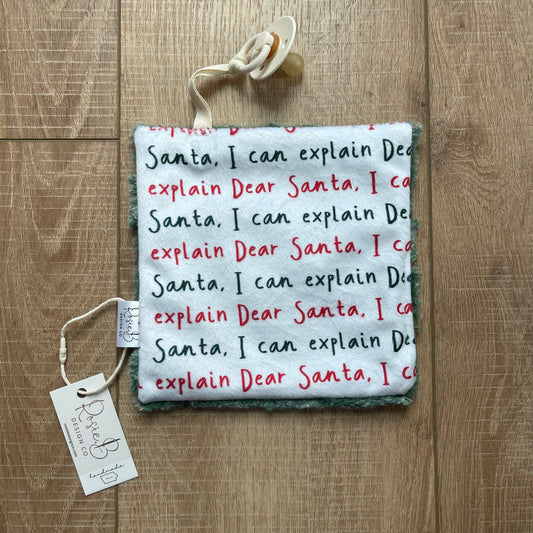 explain Dear Santa, I ca
Santa, I can explain Dea
explain Dear Santa, I ca
Santa, I can explain De
explain Dear Santa, I ca
Santa, I can explain De
explain Dear Santa, I ca
Santa, I can explain De
explain Dear Santa, I c
Rosie B
DESIGN CO.
Rosie B
DESIGN CO.
handmade